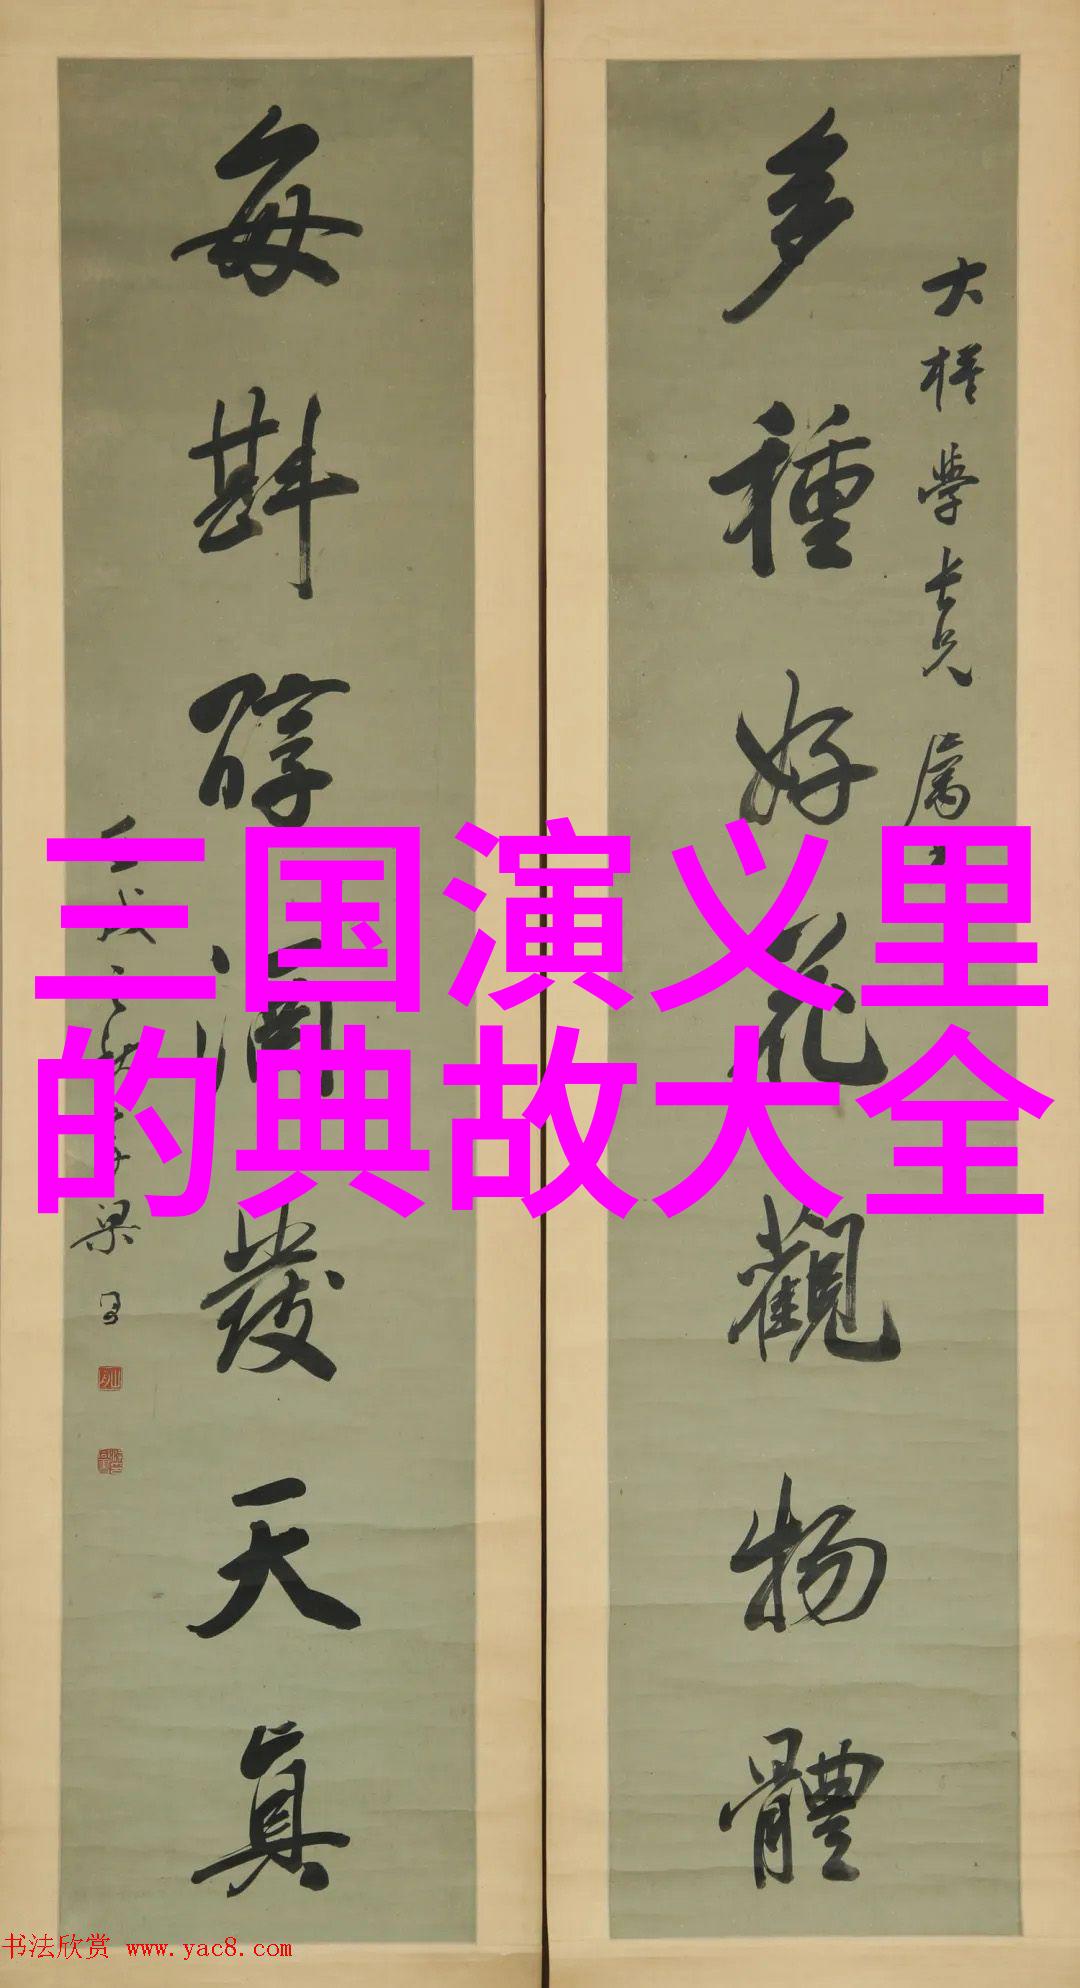 大樣學長兄屬
多種好花觀物體
每斟醇酒發天真
梁
三国演义里
的典故大全
书法欣赏 www.yac8.com